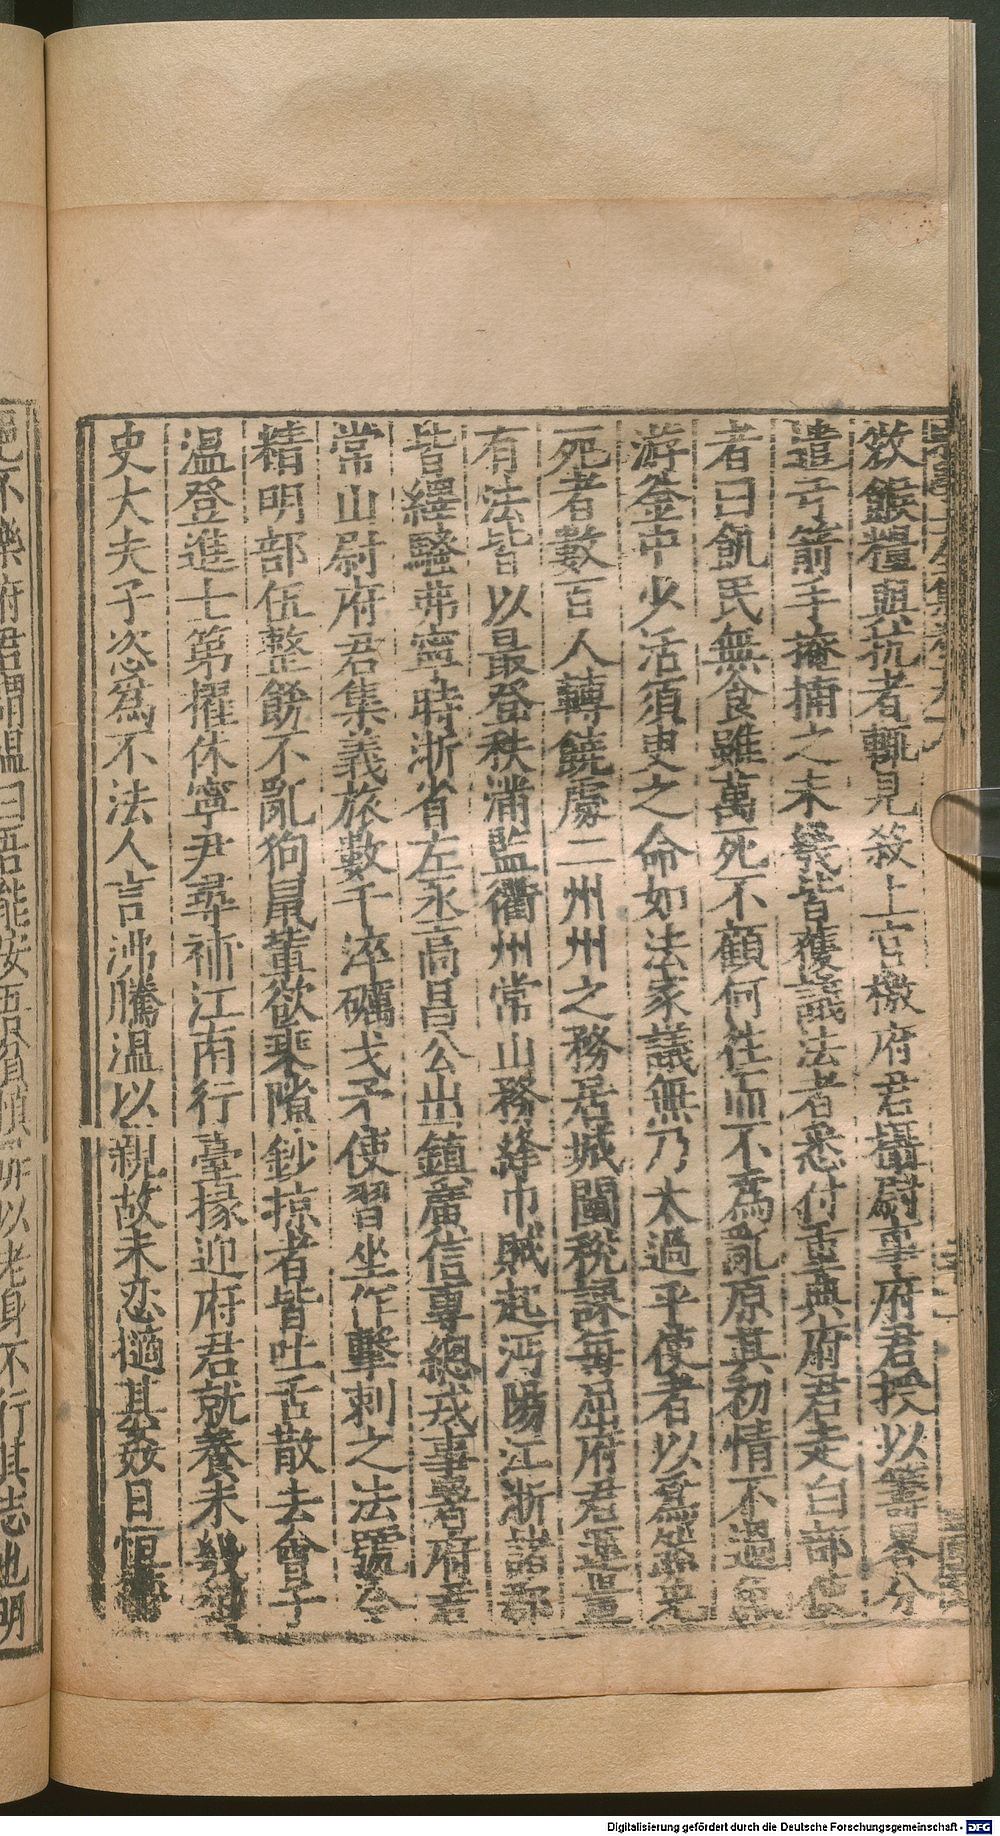 斂餱糧與抗者輒見殺上官檄府君攝尉事府君授以籌畧分
遣弓箭手掩捕之未幾皆獲議法者悉付重典府君走白部使
者曰飢民無食雖萬死不顧何往而不為亂原其初情不過魚
游釜中少活須臾之命如法家議無乃太過乎使者以為然免
死者數百人轉饒處二州州之務居城闉稅課每屈府君運量
有法皆以最登秩滿監衢州常山務絳巾賊起沔陽江浙諸郡
皆繹騷弗寧時浙省左丞高昌公出鎮廣信專總戎事署府君
常山尉府君集義旅數千淬礪戈矛使習坐作擊刺之法號令
精明部伍整飭不亂狗鼠輩欲乘隙鈔掠者皆吐舌散去會子
溫登進士第擢休寧尹尋補江南行臺掾迎府君就養未幾
史大夫子恣為不法人言沸騰溫以親故未忍擿其姦日恒
不樂府君謂溫曰吾能安 以老身不行其志也明
Digitalisierung gefördert durch die Deutsche Forschungsgemeinschaft - DFG